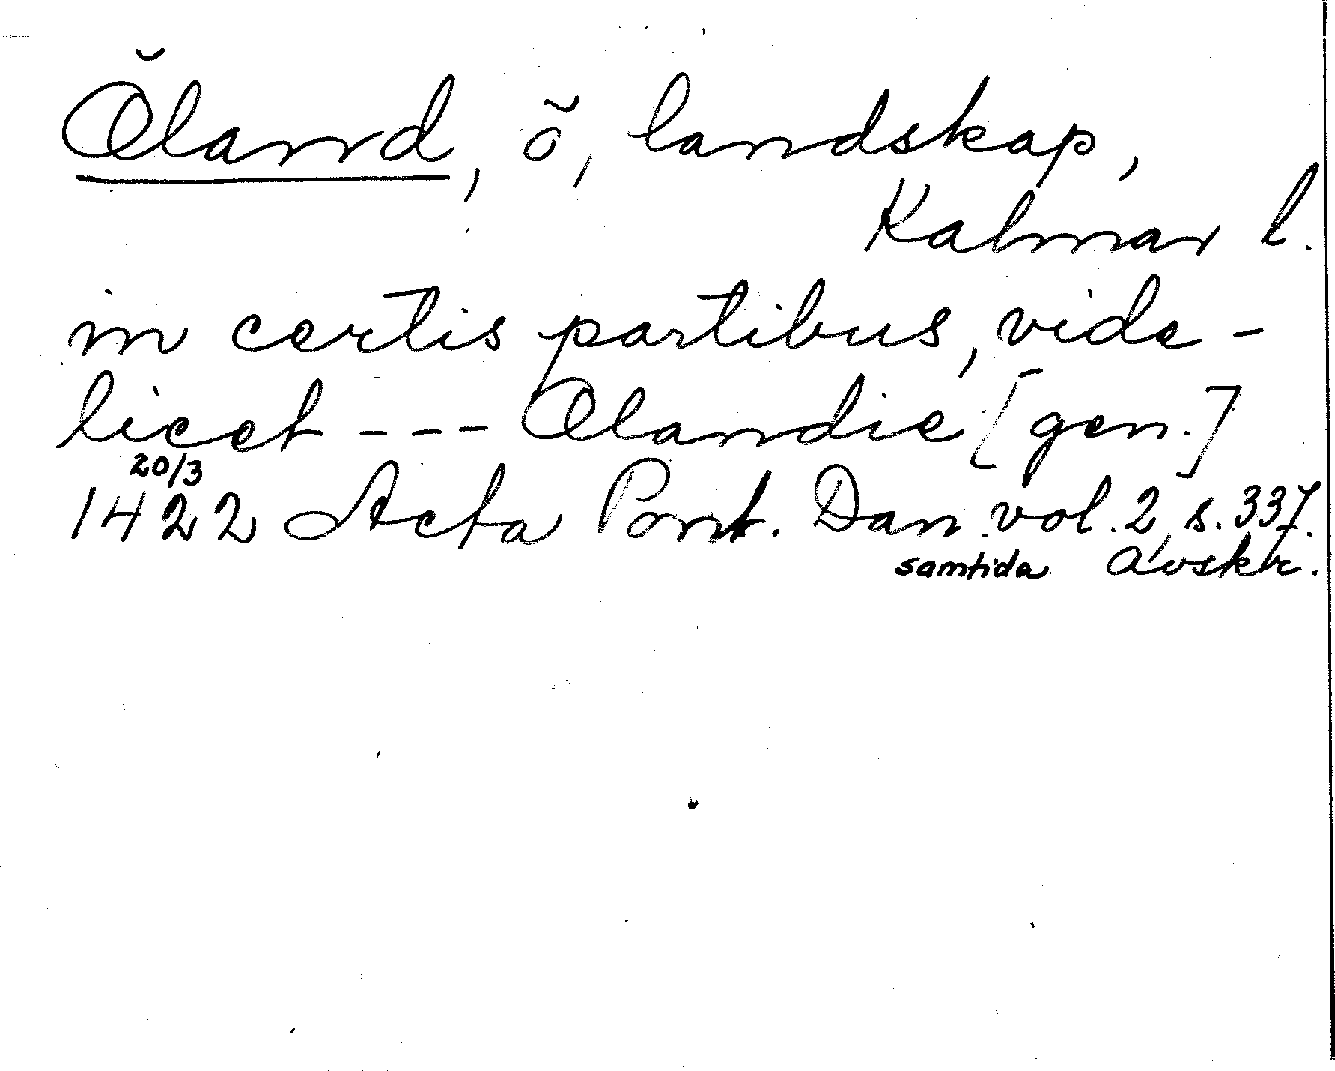 Öland, ö, landskap,
Kalmar l.
in certis partibus, vide-
licet --- Olandie [gen.]
20/3
1422 Acta Pont. Dan. vol. 2 s. 337.
samtida avskr.